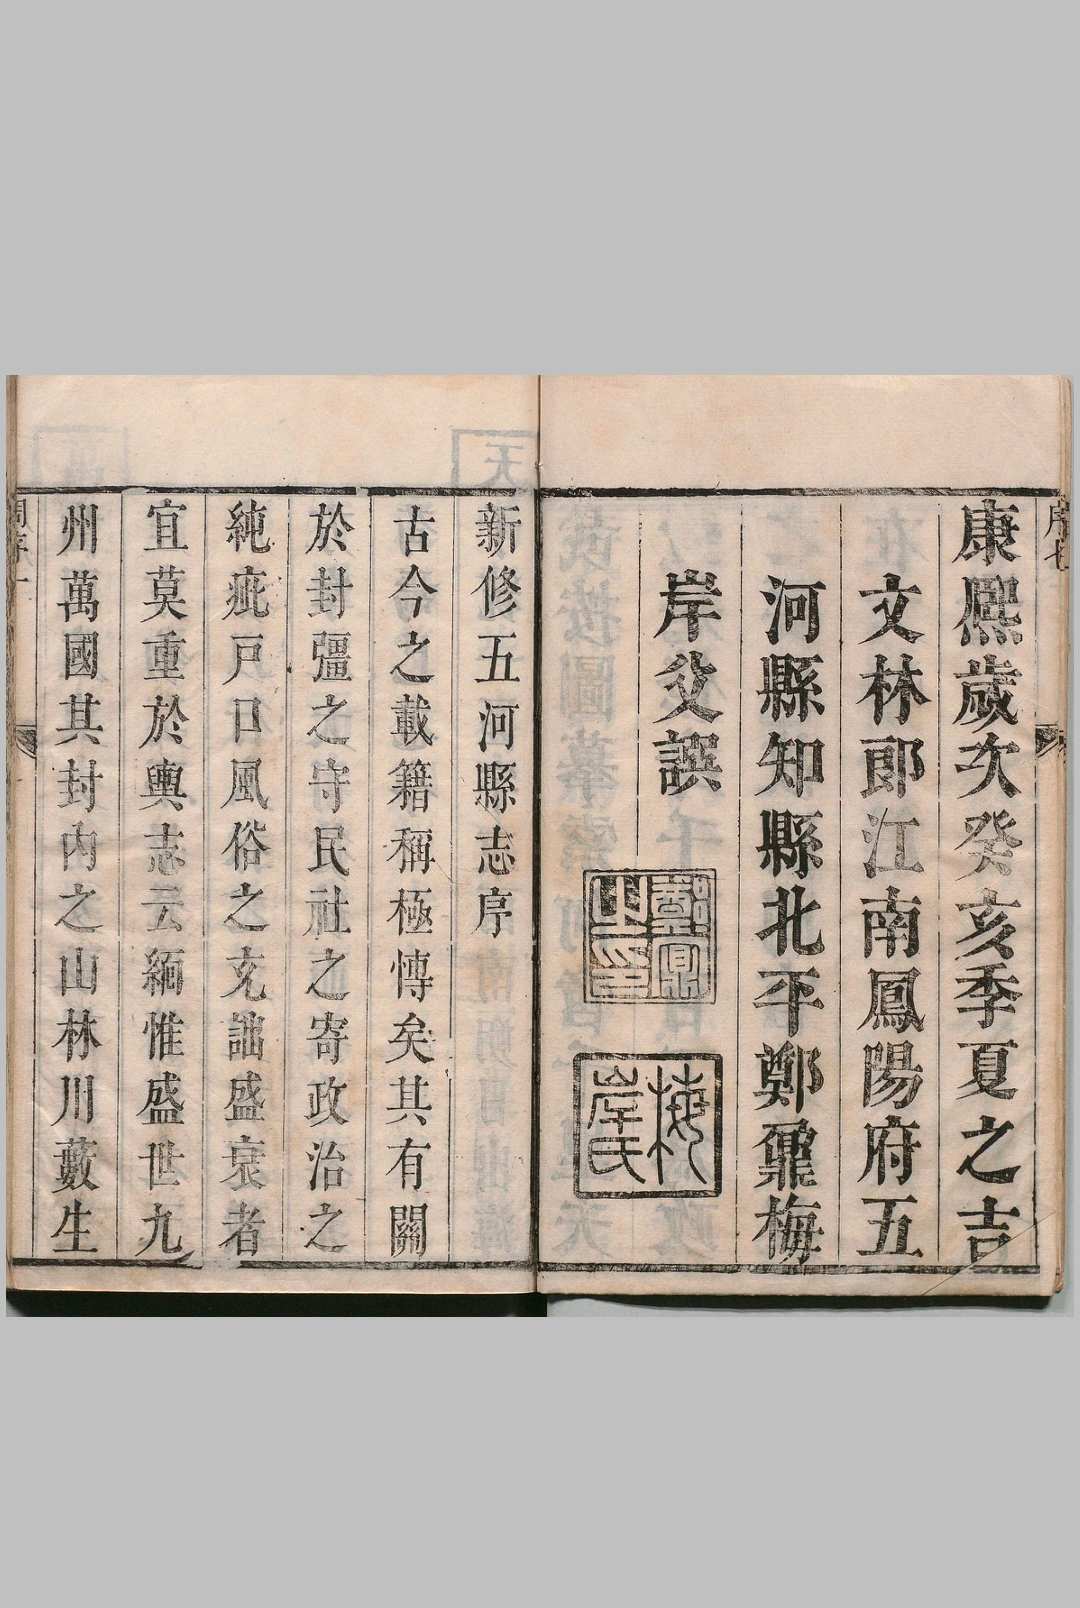 康熙歲次癸亥季夏之吉
文林郎江南鳳陽府五
河縣知縣北平鄭鼐梅
岸父譔
鄭鼐之印
梅岸氏
新修五河縣志序
古今之載籍稱極慱矣其有關
於封疆之守民社之寄政治之
純疵戸口風俗之充詘盛衰者
宜莫重於輿志云緬惟盛世九
州萬國其封内之山林川藪生